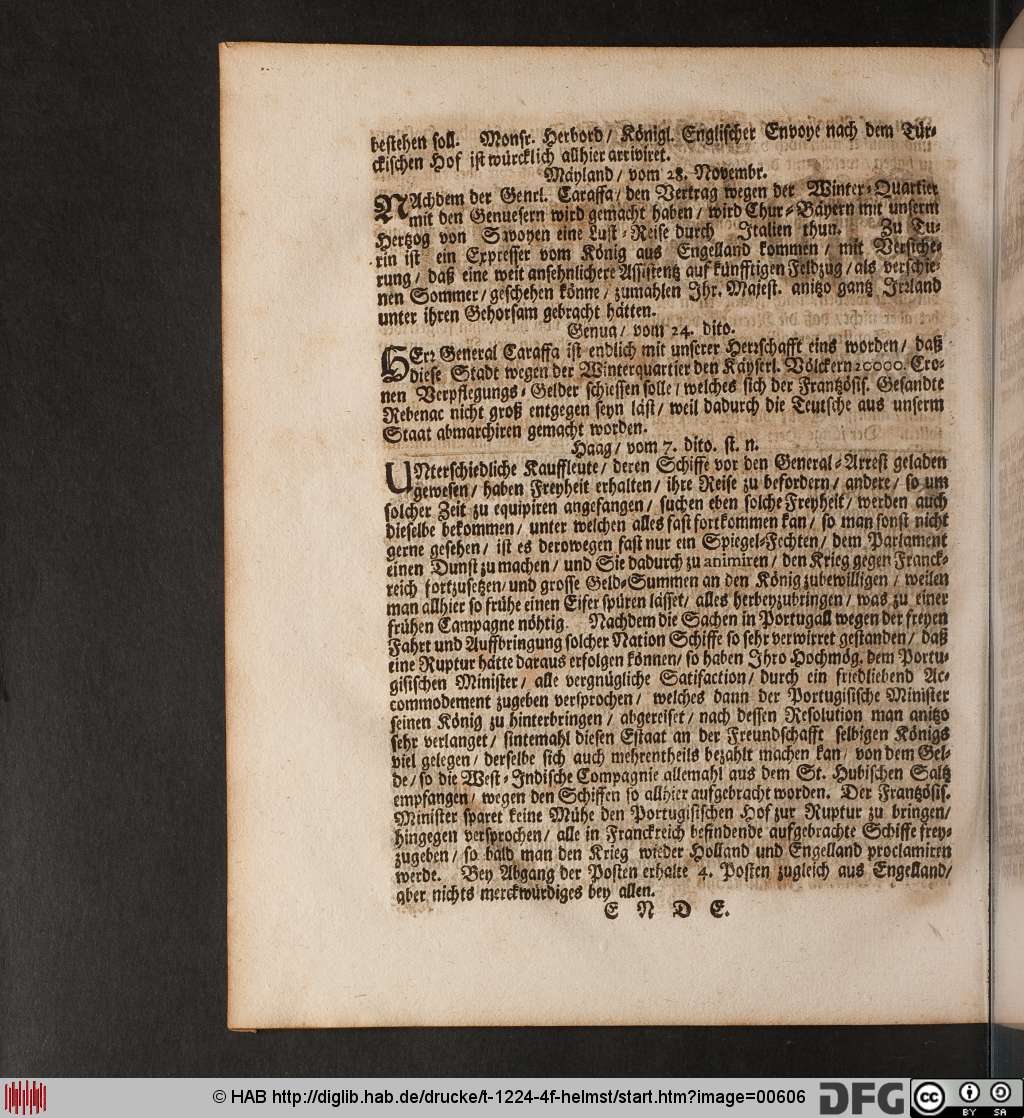 bestehen soll. Monsr. Herbord/ Königl. Englischer Envoye nach dem Tür-
ckischen Hof ist würcklich allhier arriviret.
Mäyland/ vom 28. Novembr.
NAchdem der Genrl. Caraffa/ den Vertrag wegen der Winter-Quartier
mit den Genuesern wird gemacht haben/ wird Chur-Bäyern mit unserm
Hertzog von Savoyen eine Lust-Reise durch Italien thun. Zu Tu-
rin ist ein Expresser vom König aus Engelland kommen/ mit Versiche-
rung/ daß eine weit ansehnlichere Assistentz auf künfftigen Feldzug/ als verschie-
nen Sommer/ geschehen könne/ zumahlen Ihr. Majest. anitzo gantz Irrland
unter ihren Gehorsam gebracht hätten.
Genua/ vom 24. dito.
HErr General Caraffa ist endlich mit unserer Herrschafft eins worden/ daß
diese Stadt wegen der Winterquartier den Käyserl. Völckern 20000. Cro-
nen Verpflegungs-Gelder schiessen solle/ welches sich der Frantzösis. Gesandte
Rebenac nicht groß entgegen seyn läst/ weil dadurch die Teutsche aus unserm
Staat abmarchiren gemacht worden.
Haag/ vom 7. dito. st. n.
UNterschiedliche Kauffleute/ deren Schiffe vor den General-Arrest geladen
gewesen/ haben Freyheit erhalten/ ihre Reise zu befordern/ andere/ so um
solcher Zeit zu equipiren angefangen/ suchen eben solche Freyheit/ werden auch
dieselbe bekommen/ unter welchen alles fast fortkommen kan/ so man sonst nicht
gerne gesehen/ ist es derowegen fast nur ein Spiegel-Fechten/ dem Parlament
einen Dunst zu machen/ und Sie dadurch zu animiren/ den Krieg gegen Franck-
reich fortzusetzen/ und grosse Geld-Summen an den König zubewilligen/ weilen
man allhier so frühe einen Eifer spüren lässet/ alles herbeyzubringen/ was zu einer
frühen Campagne nöhtig. Nachdem die Sachen in Portugall wegen der freyen
Fahrt und Auffbringung solcher Nation Schiffe so sehr verwirret gestanden/ daß
eine Ruptur hätte daraus erfolgen können/ so haben Ihro Hochmög. dem Portu-
gisischen Minister/ alle vergnügliche Satifaction/ durch ein friedliebend Ac-
commodement zugeben versprochen/ welches dann der Portugisische Minister
seinen König zu hinterbringen/ abgereiset/ nach dessen Resolution man anitzo
sehr verlanget/ sintemahl diesen Estaat an der Freundschafft selbigen Königs
viel gelegen/ derselbe sich auch mehrentheils bezahlt machen kan/ von dem Gel-
de/ so die West-Indische Compagnie allemahl aus dem St. Hubischen Saltz
empfangen/ wegen den Schiffen so allhier aufgebracht worden. Der Frantzösis.
Minister sparet keine Mühe den Portugisischen Hof zur Ruptur zu bringen/
hingegen versprochen/ alle in Franckreich befindende aufgebrachte Schiffe frey-
zugeben/ so bald man den Krieg wieder Holland und Engelland proclamiren
werde. Bey Abgang der Posten erhalte 4. Posten zugleich aus Engelland/
aber nichts merckwürdiges bey allen.
E N D E.
© HAB http://diglib.hab.de/drucke/t-1224-4f-helmst/start.htm?image=00606
DFG
cc BY SA